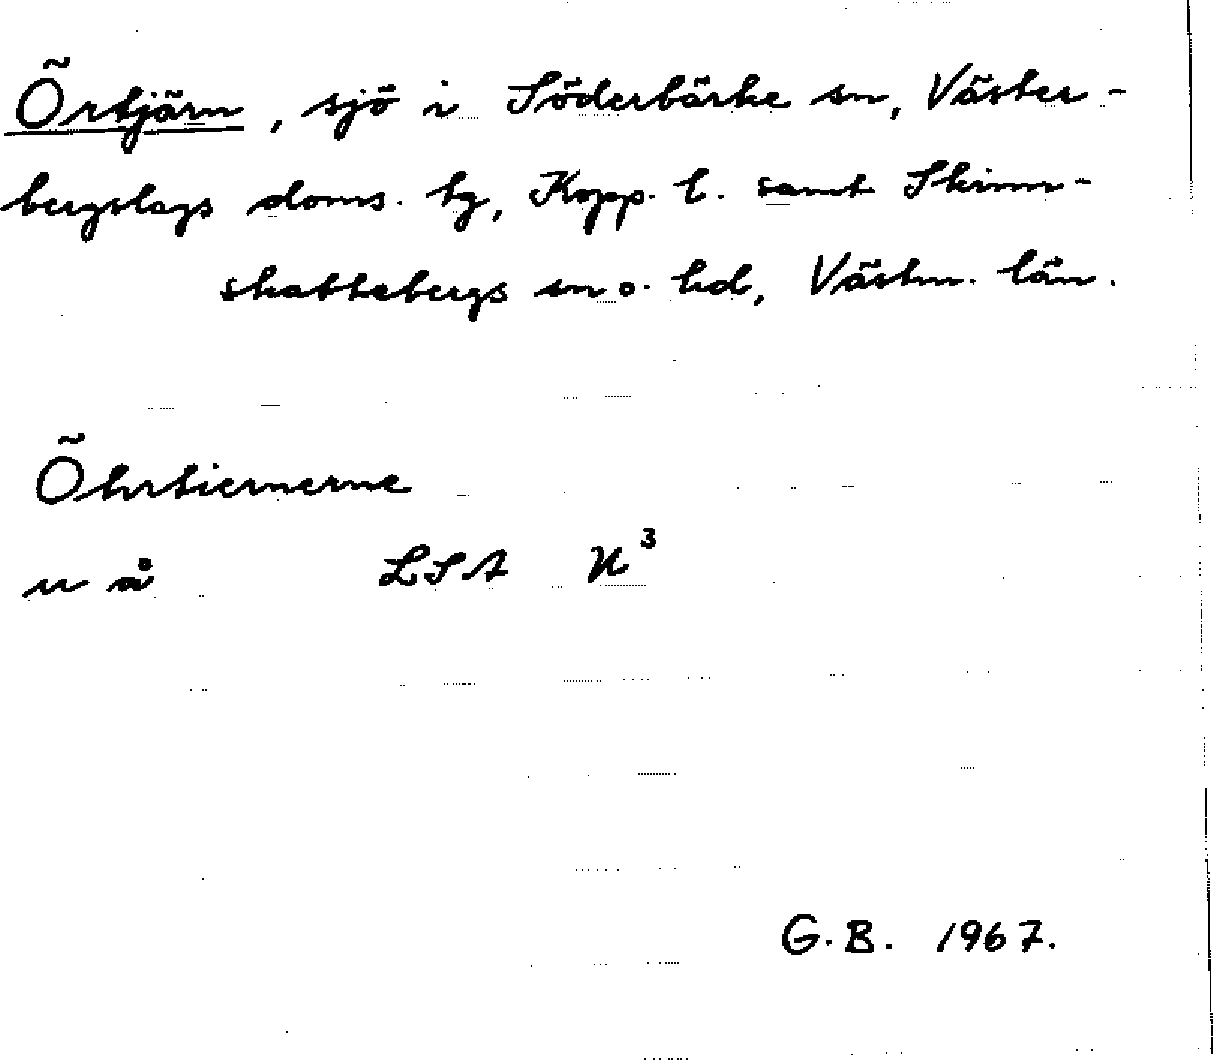 Örtjärn, sjö i Söderbärke sn, Väster-
bergslags doms. tg, Kopp. l. samt Skinn-
skattebergs sn o. hd, Västm. län.
Öhrtiernerne
u å LSA N³
G.B. 1967.